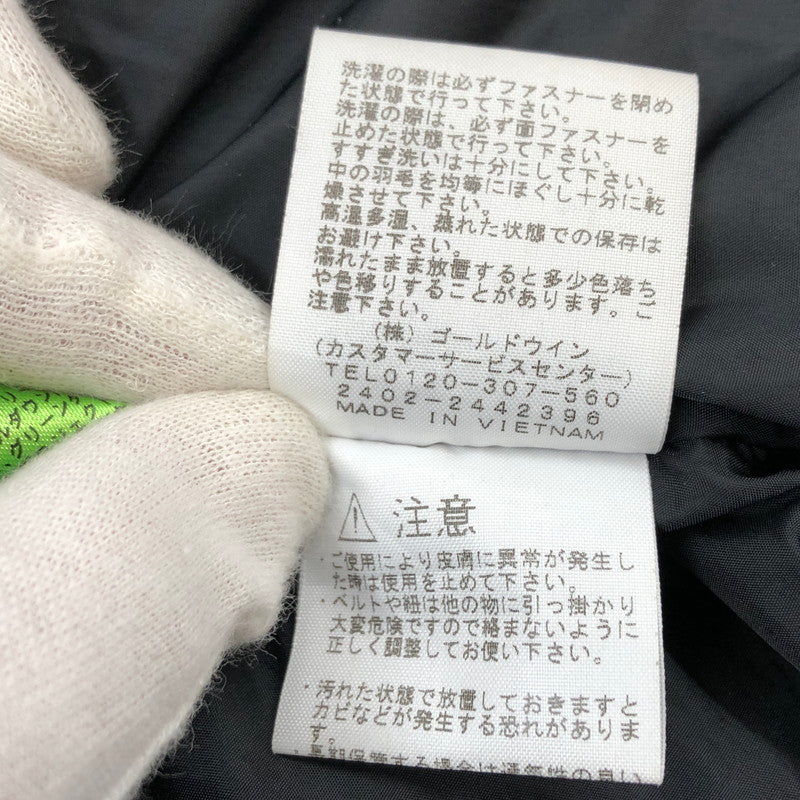 洗濯の際は必ずファスナーを閉め
た状態で行って下さい。
洗濯の際は、必ず面ファスナーを
止めた状態で行って下さい。
すすぎ洗いは十分にして下さい。
中の羽毛を均等にほぐし十分に乾
燥させて下さい。
高温多湿、蒸れた状態での保存は
お避け下さい。
濡れたまま放置すると多少色落ち
や色移りすることがあります。ご
注意下さい。
(株)ゴールドウイン
(カスタマーサービスセンター)
TEL0120-307-560
2402-2442396
MADE IN VIETNAM
注意
・ご使用により皮膚に異常が発生し
た時は使用を止めて下さい。
・ベルトや紐は他の物に引っ掛かり
大変危険ですので絡まないように
正しく調整してお使い下さい。
・汚れた状態で放置しておきますと
カビなどが発生する恐れがありま
す。
・長期保管する場合は通気性の良い